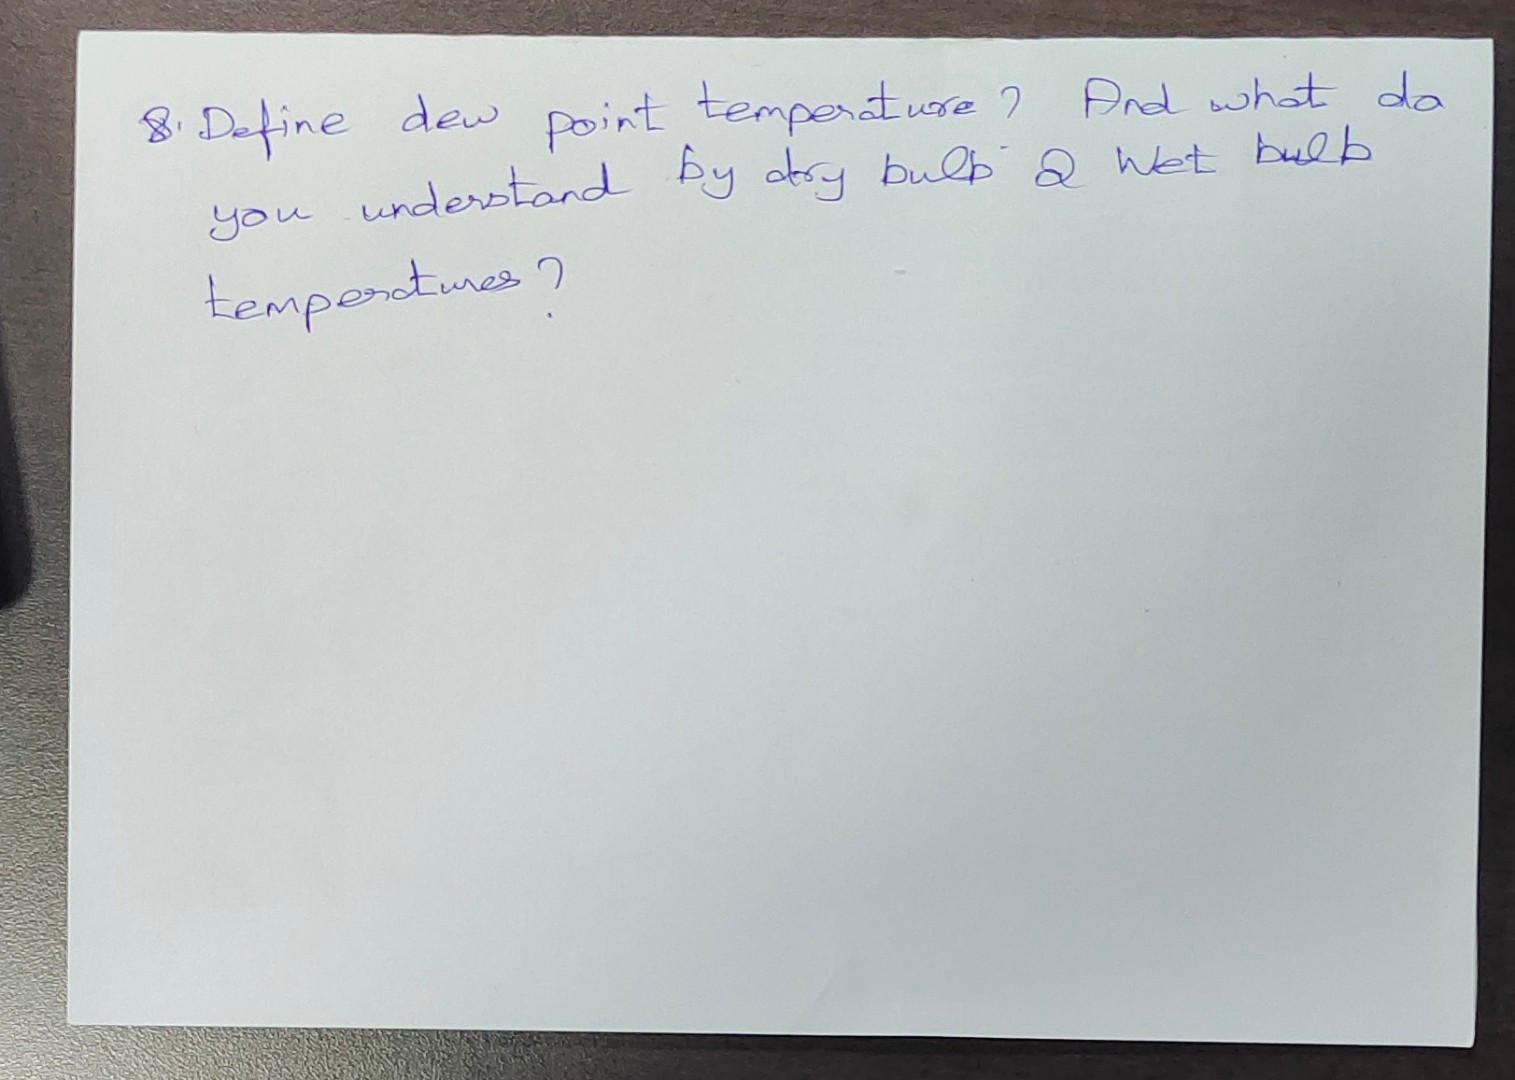 8. Define dew point temperature? And what do
you understand by dry bulb & Wet bulb
temperatures?